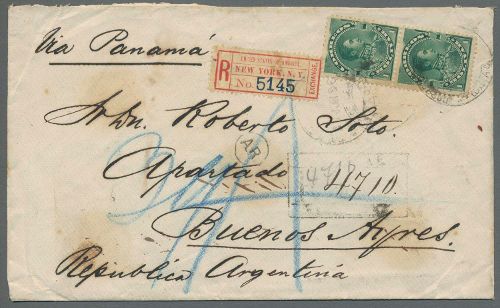 Via Panamá
UNITED STATES OF AMERICA.
R NEW YORK, N.Y. EXCHANGE.
No. 5145
Sr Dn. Roberto Soto.
AR
Apartado 4710.
4716
Buenos Ayres.
Republica Argentina